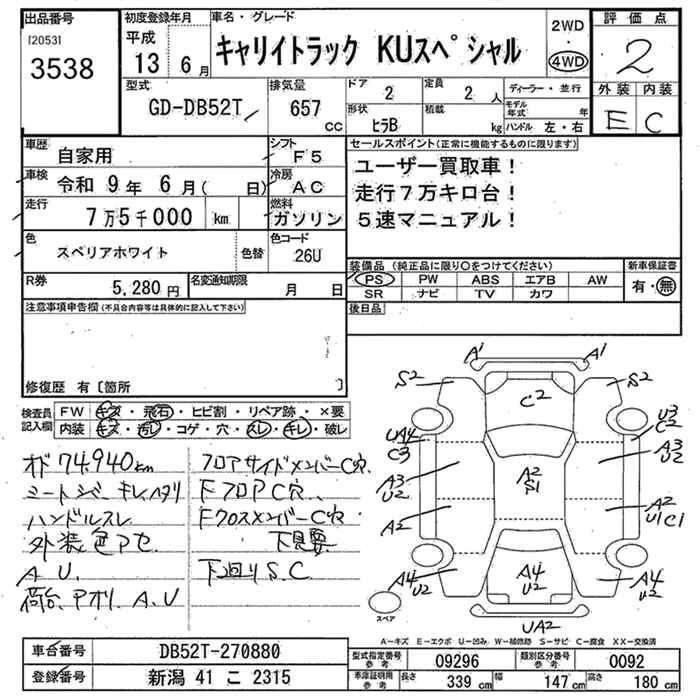 出品番号
[2053]
3538
初度登録年月
平成
13 6月
車名・グレード
キャリイトラック KUスペシャル
2WD
・
4WD
評価点
2
外装 内装
E C
型式
GD-DB52T
排気量
657
cc
ドア
2
定員
2 人
形状
ヒラB
積載
kg
ディーラー・並行
モデル年式 年
ハンドル 左・右
車歴
自家用
シフト
F5
車検
令和 9年 6月( 日)
冷房
AC
走行
7万5千000 km
燃料
ガソリン
色
スペリアホワイト
色替
色コード
26U
R券
5,280 円
名変通知期限
月 日
セールスポイント(正常に機能するものに限ります)
ユーザー買取車!
走行7万キロ台!
5速マニュアル!
装備品(純正品に限り○をつけてください)
PS PW ABS エアB AW
SR ナビ TV カワ
新車保証書
有・無
後日品
注意事項申告欄(不具合内容等は具体的に記入して下さい)
修復歴 有〔箇所 〕
検査員記入欄
FW キズ・飛石・ヒビ割・リペア跡・×要
内装 キズ・汚レ・コゲ・穴・スレ・キレ・破レ
オド 74,940km
シートシミ キレ ハタリ
ハンドルスレ
外装色アセ
A.U.
荷台、アオリ A.U
フロアサイドメンバーC穴
FフロアC穴
FクロスメンバーC穴
下見要
下回りS.C.
A1 A1
S2 S2
C2
U3
C2
UA4
C3
A3
U2
A2
S1
A3
U2
A2
A2
U1C1
A4
U2
A4
U2
A4
U2
UA2
スペア
A-キズ E-エクボ U-凹み W-補修跡 S-サビ C-腐食 XX-交換済
車台番号
DB52T-270880
登録番号
新潟 41 こ 2315
型式指定番号
参考
09296
類別区分番号
参考
0092
車庫証明用
参考
長さ 339 cm
幅 147 cm
高さ 180 cm